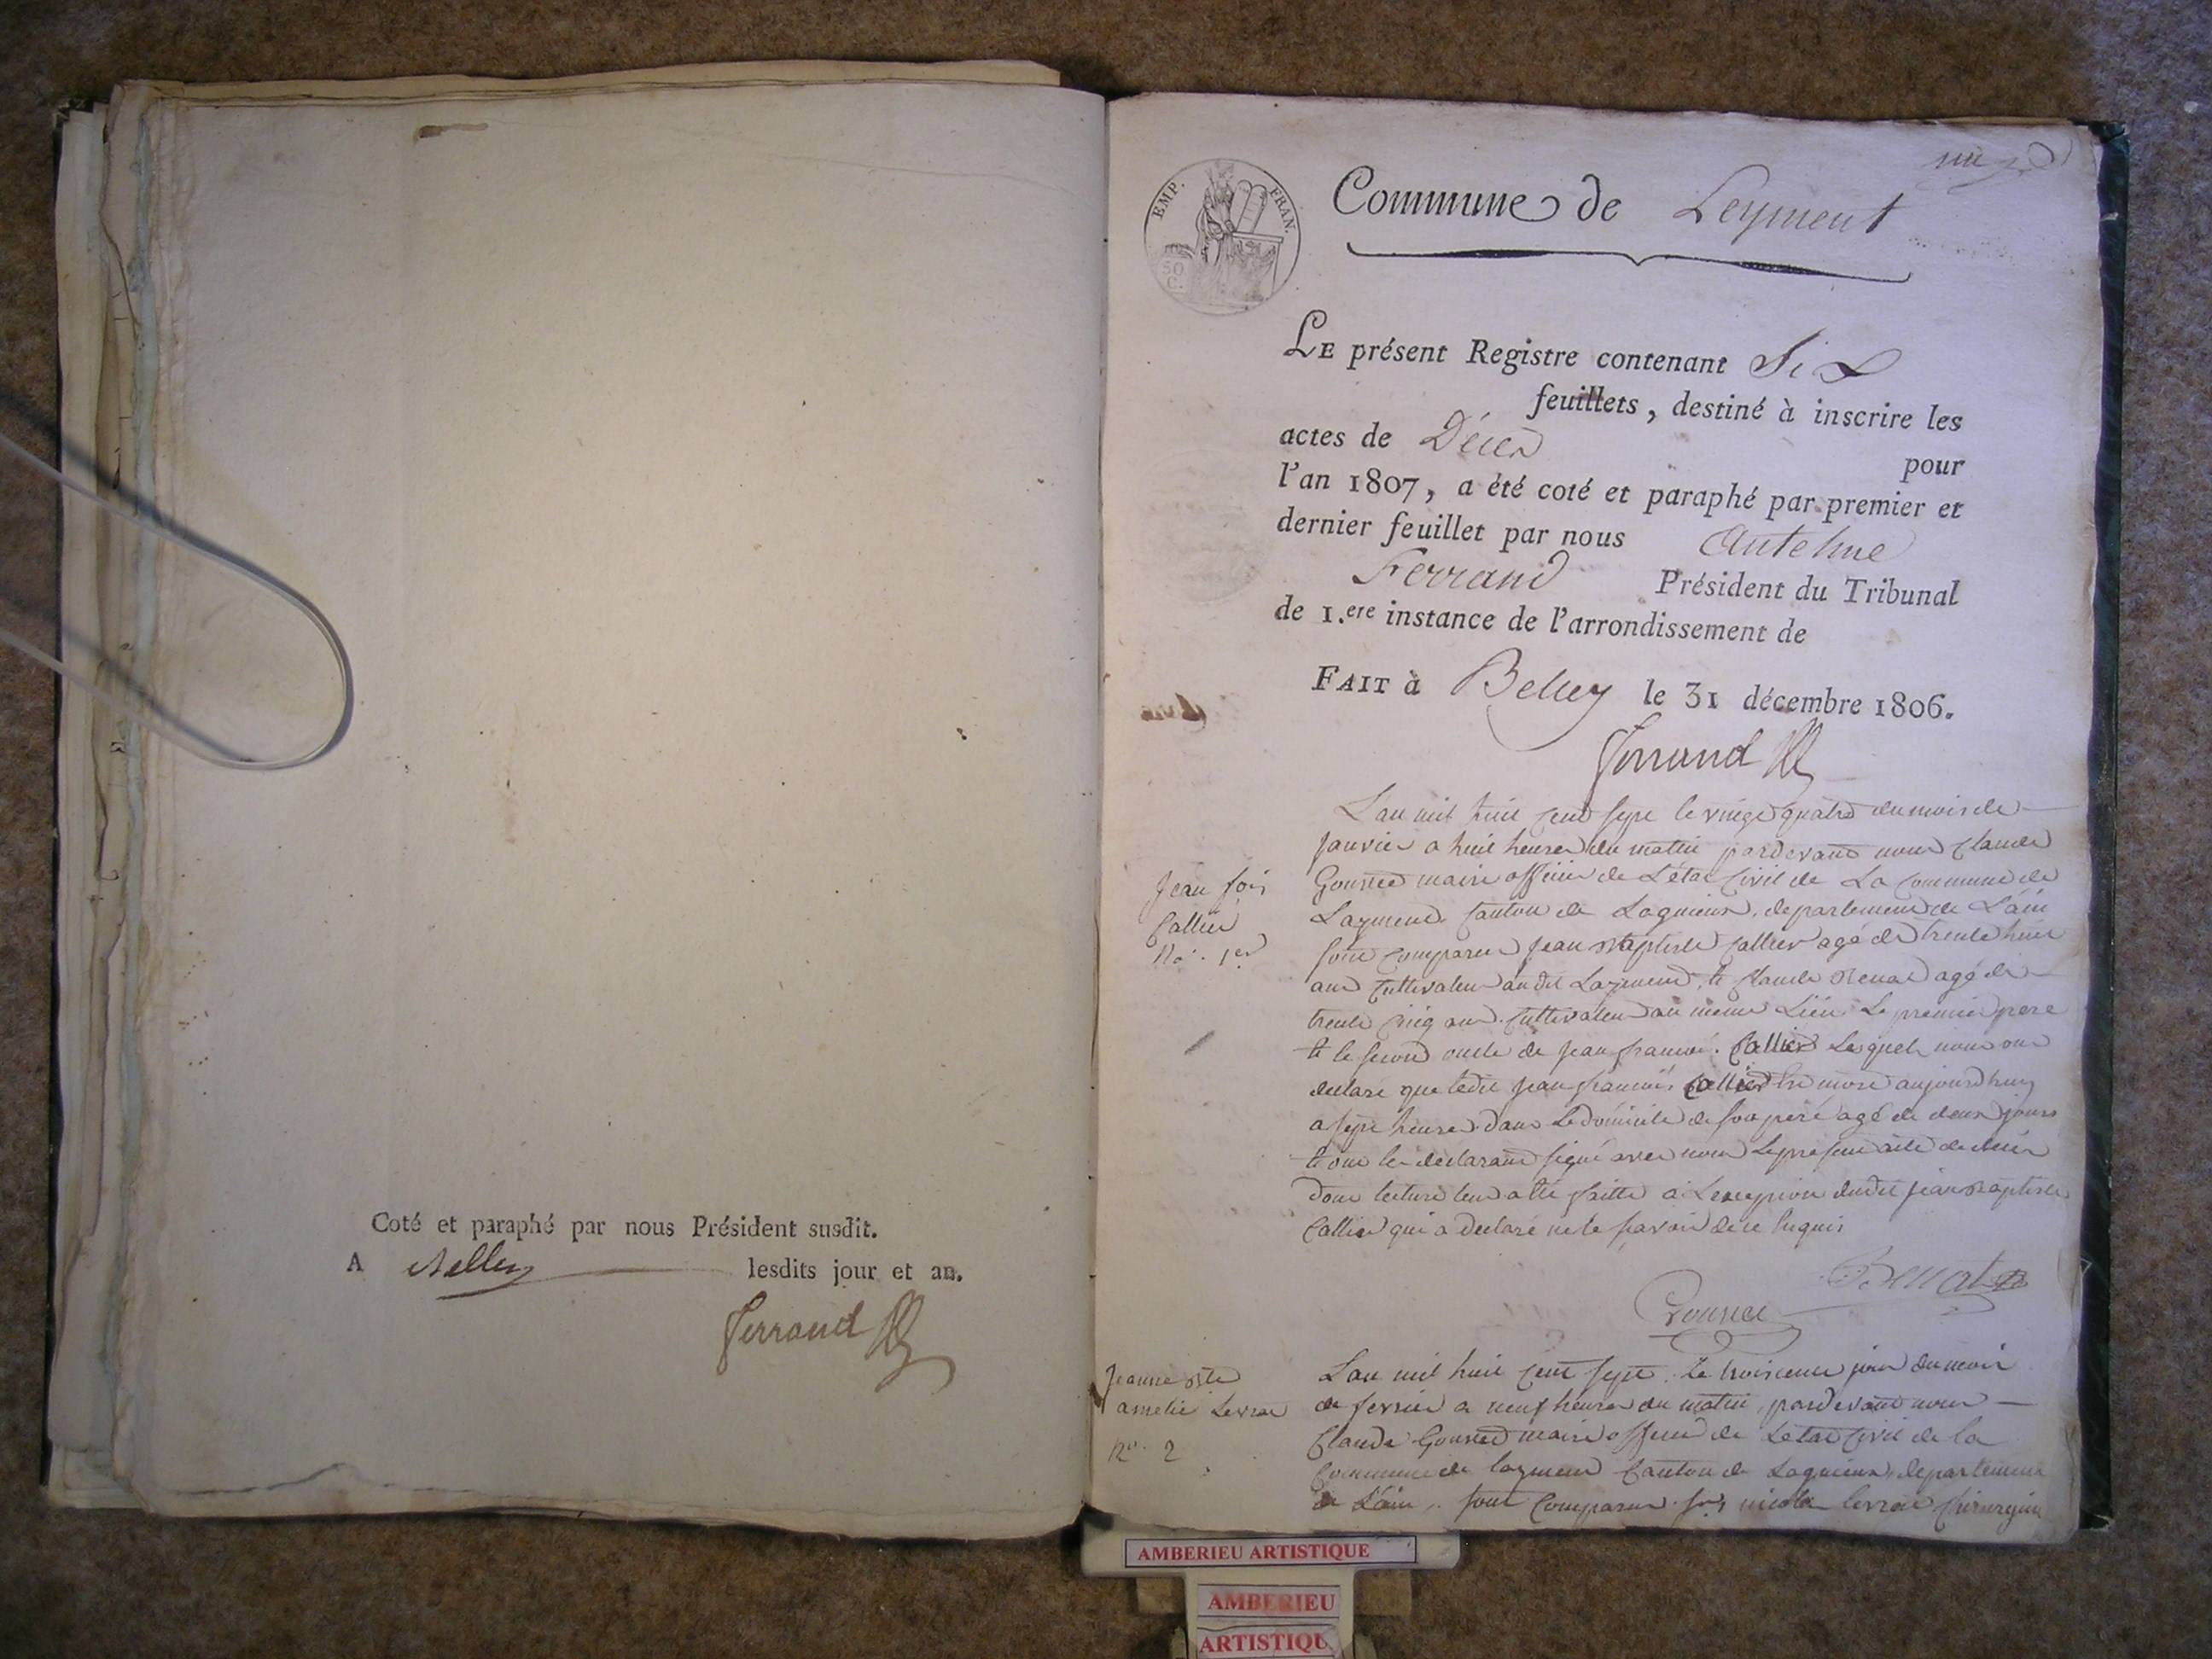 Coté et paraphé par nous Président susdit.
A Belley lesdits jour et an.
Ferrand
EMP. FRAN.
50
C.
Commune de Leyment
LE présent Registre contenant Six
feuillets, destiné à inscrire les
actes de Décès pour
l'an 1807, a été coté et paraphé par premier et
dernier feuillet par nous Antelme
Ferrand Président du Tribunal
de 1.ere instance de l'arrondissement de
FAIT à Belley le 31 décembre 1806.
Ferrand
Jean fois
Callier
No. 1er
L'an mil huit cent sept le vingt quatre du mois de
janvier a huit heures du matin pardevant nous Claude
Gourred maire officier de L'état Civil de La Commune de
Layment Canton de Lagnieux, departement de L'ain
sont comparu jean Baptiste Callier agé de trente huit
ans Cultivateur audit Layment, et Claude Benat agé de
trente cinq ans Cultivateur au meme Lieu Le premier pere
et le second oncle de jean francois Callier Lesquels nous ont
declaré que ledit jean francois Callier est mort aujourdhuy
a sept heures dans Le domicile de son pere agé de deux jours
et ont les declarant signé avec nous Le present acte de décès
dont lecture leur a été faitte a Lexception dudit jean Baptiste
Callier qui a declaré ne le savoir de ce Requis
Benat
Gourred
Jeanne Bte
amelie Levrat
No. 2
L'an mil huit Cent sept, le troisieme jour du mois
de fevrier a neuf heures du matin, pardevant nous
Claude Gourred maire officier de L'état Civil de la
Commune de layment Canton de Lagnieux, departement
de L'ain, sont Comparu fois nicolas levrat Chirurgien
AMBERIEU ARTISTIQUE
AMBERIEU
ARTISTIQU